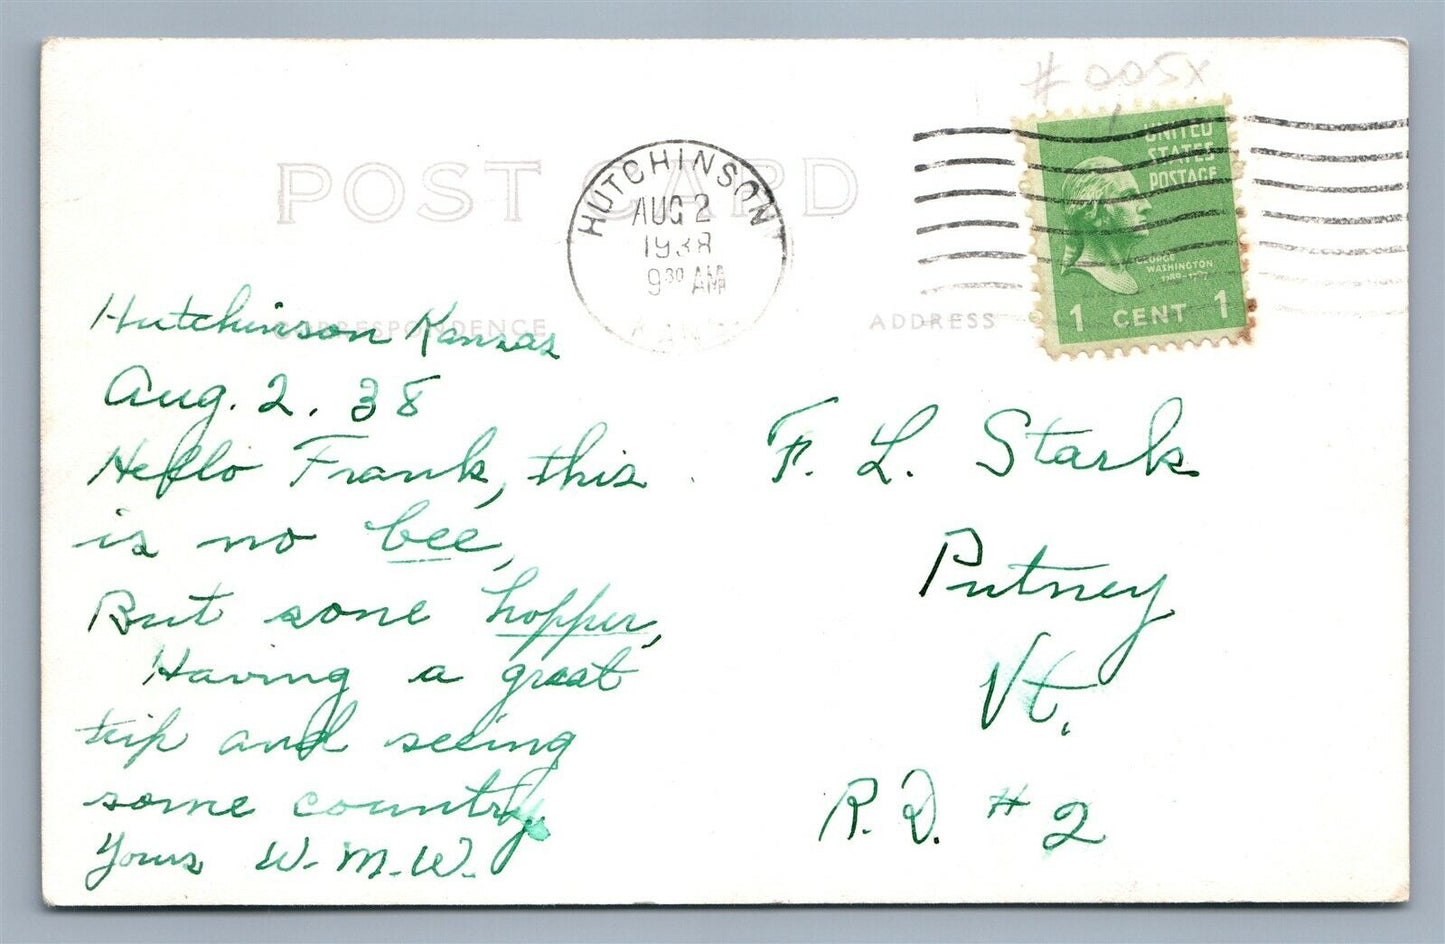 #005x
POST CARD
HUTCHINSON
AUG 2
1938
9 30 AM
KANS.
UNITED
STATES
POSTAGE
GEORGE
WASHINGTON
1789-1797
1 CENT 1
CORRESPONDENCE
ADDRESS
Hutchinson Kansas
Aug. 2, 38
Hello Frank, this
is no bee,
But sone hopper,
Having a great
trip and seeing
some country.
Yours W. M. W.
F. L. Stark
Putney
Vt.
R. D. # 2